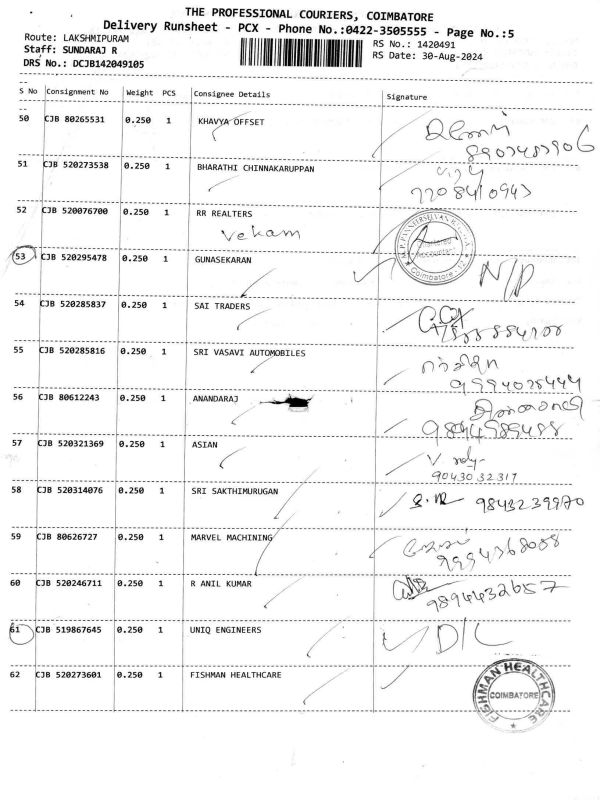 THE PROFESSIONAL COURIERS, COIMBATORE
Delivery Runsheet - PCX - Phone No.:0422-3505555 - Page No.:5
Route: LAKSHMIPURAM
Staff: SUNDARAJ R
DRS No.: DCJB142049105
RS No.: 1420491
RS Date: 30-Aug-2024
S No Consignment No Weight PCS Consignee Details Signature
50 CJB 80265531 0.250 1 KHAVYA OFFSET
51 CJB 520273538 0.250 1 BHARATHI CHINNAKARUPPAN
7708410943
52 CJB 520076700 0.250 1 RR REALTERS
Vekam
53 CJB 520295478 0.250 1 GUNASEKARAN N/D
54 CJB 520285837 0.250 1 SAI TRADERS
55 CJB 520285816 0.250 1 SRI VASAVI AUTOMOBILES
9994025444
56 CJB 80612243 0.250 1 ANANDARAJ
9894989488
57 CJB 520321369 0.250 1 ASIAN
9043032317
58 CJB 520314076 0.250 1 SRI SAKTHIMURUGAN 9843239970
59 CJB 80626727 0.250 1 MARVEL MACHINING
9994368088
60 CJB 520246711 0.250 1 R ANIL KUMAR
9894432657
61 CJB 519867645 0.250 1 UNIQ ENGINEERS D/L
62 CJB 520273601 0.250 1 FISHMAN HEALTHCARE
FISHMAN HEALTHCARE
COIMBATORE